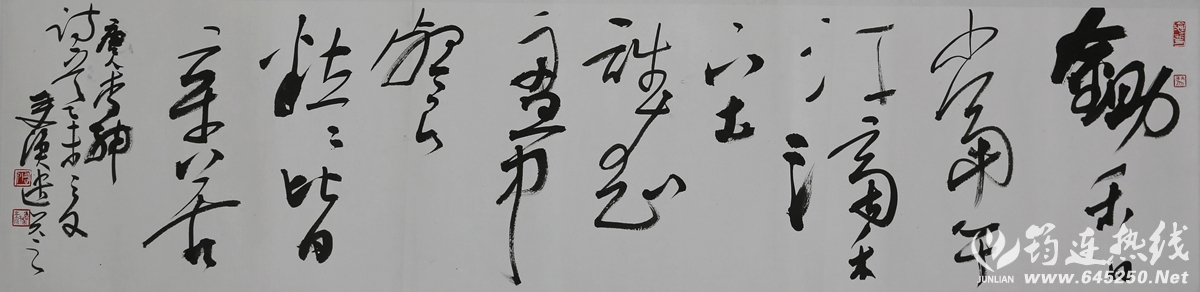 鋤禾日
當午
汗滴禾
下土
誰知
盤中
餐
粒〻皆
辛苦
唐李紳
筠连热线
JUNLIAN www.645250.Net